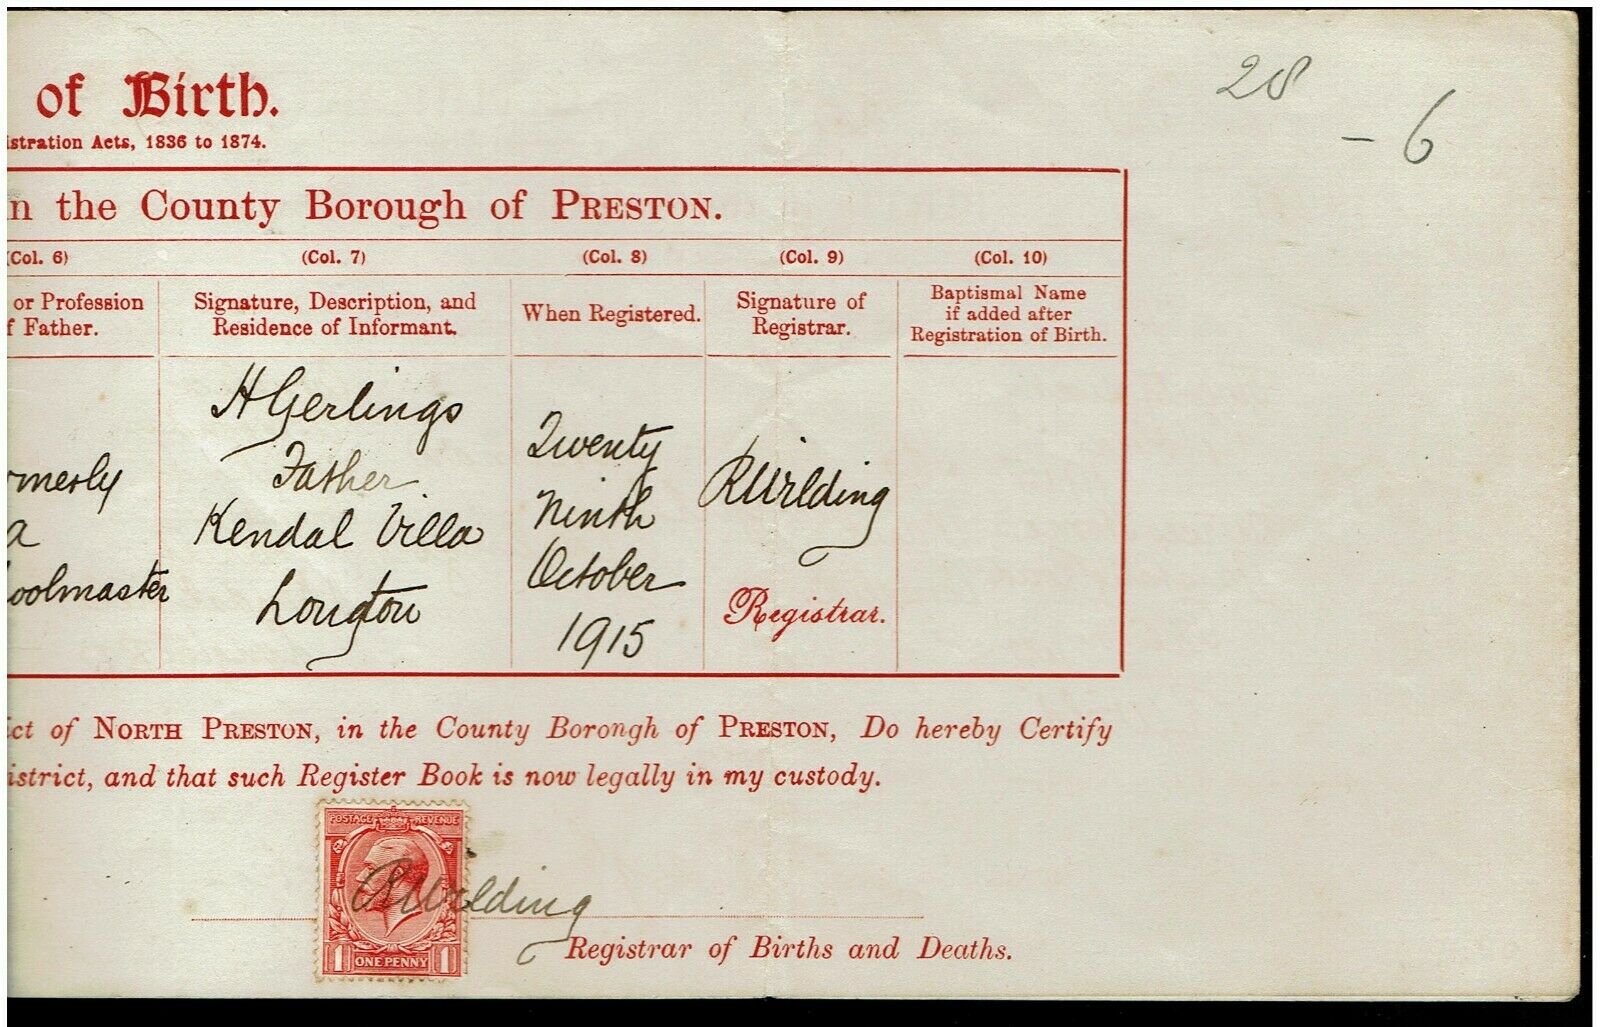 of Birth.
istration Acts, 1836 to 1874.
28
- 6
in the County Borough of PRESTON.
(Col. 6) (Col. 7) (Col. 8) (Col. 9) (Col. 10)
or Profession
f Father.
Signature, Description, and
Residence of Informant.
When Registered.
Signature of
Registrar.
Baptismal Name
if added after
Registration of Birth.
rmerly
a
oolmaster
H Gerlings
Father
Kendal Villa
Longton
Twenty
Ninth
October
1915
R Wilding
Registrar.
ict of NORTH PRESTON, in the County Borongh of PRESTON, Do hereby Certify
istrict, and that such Register Book is now legally in my custody.
POSTAGE REVENUE
R Wilding
1 ONE PENNY 1
Registrar of Births and Deaths.